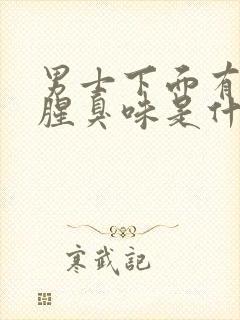 男士下面有
腥臭味是什
寒武記